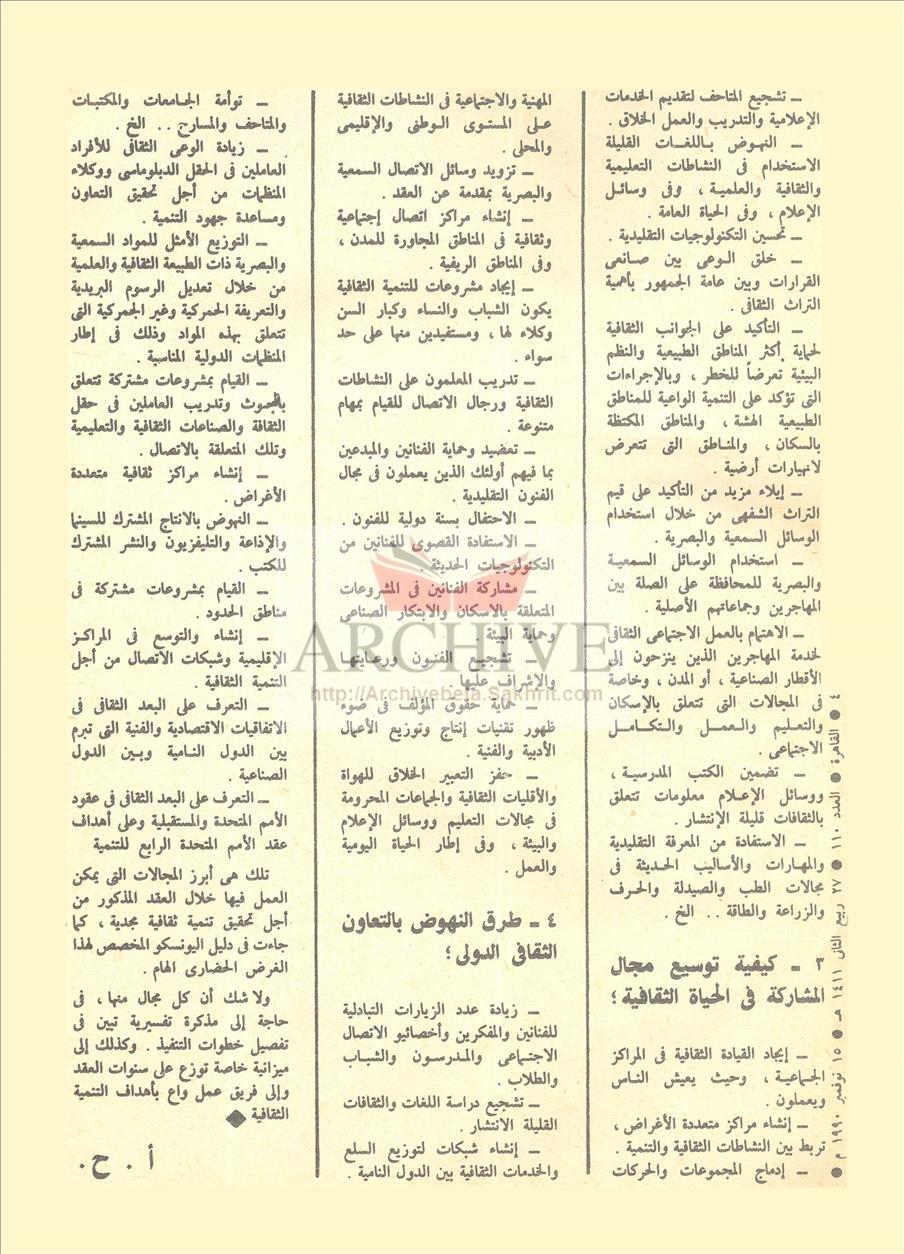 ـ تشجيع المتاحف لتقديم الخدمات
الإعلامية والتدريب والعمل الخلاق .
ـ النهوض باللغات القليلة
الاستخدام فى النشاطات التعليمية
والثقافية والعلمية ، وفى وسائل
الإعلام ، وفى الحياة العامة .
ـ تحسين التكنولوجيات التقليدية .
ـ خلق الوعى بين صانعى
القرارات وبين عامة الجمهور بأهمية
التراث الثقافى .
ـ التأكيد على الجوانب الثقافية
لحماية أكثر المناطق الطبيعية والنظم
البيئية تعرضاً للخطر ، وبالإجراءات
التى تؤكد على التنمية الواعية للمناطق
الطبيعية الهشة ، والمناطق المكتظة
بالسكان ، والمناطق التى تتعرض
لانهيارات أرضية .
ـ إيلاء مزيد من التأكيد على قيم
التراث الشفهى من خلال استخدام
الوسائل السمعية والبصرية .
ـ استخدام الوسائل السمعية
والبصرية للمحافظة على الصلة بين
المهاجرين وجماعاتهم الأصلية .
ـ الاهتمام بالعمل الاجتماعى الثقافى
لخدمة المهاجرين الذين ينزحون إلى
الأقطار الصناعية ، أو المدن ، وخاصة
فى المجالات التى تتعلق بالإسكان
والتعليم والعمل والتكامل
الاجتماعى .
ـ تضمين الكتب المدرسية ،
ووسائل الإعلام معلومات تتعلق
بالثقافات قليلة الإنتشار .
ـ الاستفادة من المعرفة التقليدية
والمهارات والأساليب الحديثة فى
مجالات الطب والصيدلة والحرف
والزراعة والطاقة .. الخ .
٣ ـ كيفية توسيع مجال
المشاركة فى الحياة الثقافية ؛
ـ إيجاد القيادة الثقافية فى المراكز
الجماعية ، وحيث يعيش الناس
ويعملون .
ـ إنشاء مراكز متعددة الأغراض ،
تربط بين النشاطات الثقافية والتنمية .
ـ إدماج المجموعات والحركات
المهنية والاجتماعية فى النشاطات الثقافية
على المستوى الوطنى والإقليمى
والمحلى .
ـ تزويد وسائل الاتصال السمعية
والبصرية بمقدمة عن العقد .
ـ إنشاء مراكز اتصال إجتماعية
وثقافية فى المناطق المجاورة للمدن ،
وفى المناطق الريفية .
ـ إيجاد مشروعات للتنمية الثقافية
يكون الشباب والنساء وكبار السن
وكلاء لها ، ومستفيدين منها على حد
سواء .
ـ تدريب المعلمون على النشاطات
الثقافية ورجال الاتصال للقيام بمهام
متنوعة .
ـ تعضيد وحماية الفنانين والمبدعين
بما فيهم أولئك الذين يعملون فى مجال
الفنون التقليدية .
ـ الاحتفال بسنة دولية للفنون .
ـ الاستفادة القصوى للفنانين من
التكنولوجيات الحديثة .
ـ مشاركة الفنانين فى المشروعات
المتعلقة بالاسكان والابتكار الصناعى
وحماية البيئة .
ـ تشجيع الفنون ورعايتها
والإشراف عليها .
ـ حماية حقوق المؤلف فى ضوء
ظهور تقنيات إنتاج وتوزيع الأعمال
الأدبية والفنية .
ـ حفز التعبير الخلاق للهواة
والأقليات الثقافية والجماعات المحرومة
فى مجالات التعليم ووسائل الإعلام
والبيئة ، وفى إطار الحياة اليومية
والعمل .
٤ ـ طرق النهوض بالتعاون
الثقافى الدولى ؛
ـ زيادة عدد الزيارات التبادلية
للفنانين والمفكرين وأخصائيو الاتصال
الاجتماعى والمدرسون والشباب
والطلاب .
ـ تشجيع دراسة اللغات والثقافات
القليلة الانتشار .
ـ إنشاء شبكات لتوزيع السلع
والخدمات الثقافية بين الدول النامية .
ـ توأمة الجامعات والمكتبات
والمتاحف والمسارح .. الخ .
ـ زيادة الوعى الثقافى للأفراد
العاملين فى الحقل الدبلوماسى ووكلاء
المنظمات من أجل تحقيق التعاون
ومساعدة جهود التنمية .
ـ التوزيع الأمثل للمواد السمعية
والبصرية ذات الطبيعة الثقافية والعلمية
من خلال تعديل الرسوم البريدية
والتعريفة الجمركية وغير الجمركية التى
تتعلق بهذه المواد وذلك فى إطار
المنظمات الدولية المناسبة .
ـ القيام بمشروعات مشتركة تتعلق
بالبحوث وتدريب العاملين فى حقل
الثقافة والصناعات الثقافية والتعليمية
وتلك المتعلقة بالاتصال .
ـ إنشاء مراكز ثقافية متعددة
الأغراض .
ـ النهوض بالانتاج المشترك للسينما
والإذاعة والتليفزيون والنشر المشترك
للكتب .
ـ القيام بمشروعات مشتركة فى
مناطق الحدود .
ـ إنشاء والتوسع فى المراكز
الإقليمية وشبكات الاتصال من أجل
التنمية الثقافية .
ـ التعرف على البعد الثقافى فى
الاتفاقيات الاقتصادية والفنية التى تبرم
بين الدول النامية وبين الدول
الصناعية .
ـ التعرف على البعد الثقافى فى عقود
الأمم المتحدة والمستقبلية وعلى أهداف
عقد الأمم المتحدة الرابع للتنمية
تلك هى أبرز المجالات التى يمكن
العمل فيها خلال العقد المذكور من
أجل تحقيق تنمية ثقافية مجدية ، كما
جاءت فى دليل اليونسكو المخصص لهذا
الغرض الحضارى الهام .
ولا شك أن كل مجال منها ، فى
حاجة إلى مذكرة تفسيرية تبين فى
تفصيل خطوات التنفيذ . وكذلك إلى
ميزانية خاصة توزع على سنوات العقد
وإلى فريق عمل واع بأهداف التنمية
الثقافية ◆
أ . ح .
٤ ● القاهرة ● العدد ١١٠ ● ٢٧ ربيع الثانى ١٤١١ هـ ● ١٥ نوفمبر ١٩٩٠ م ●
ARCHIVE
http://Archivebeta.Sakhrit.com